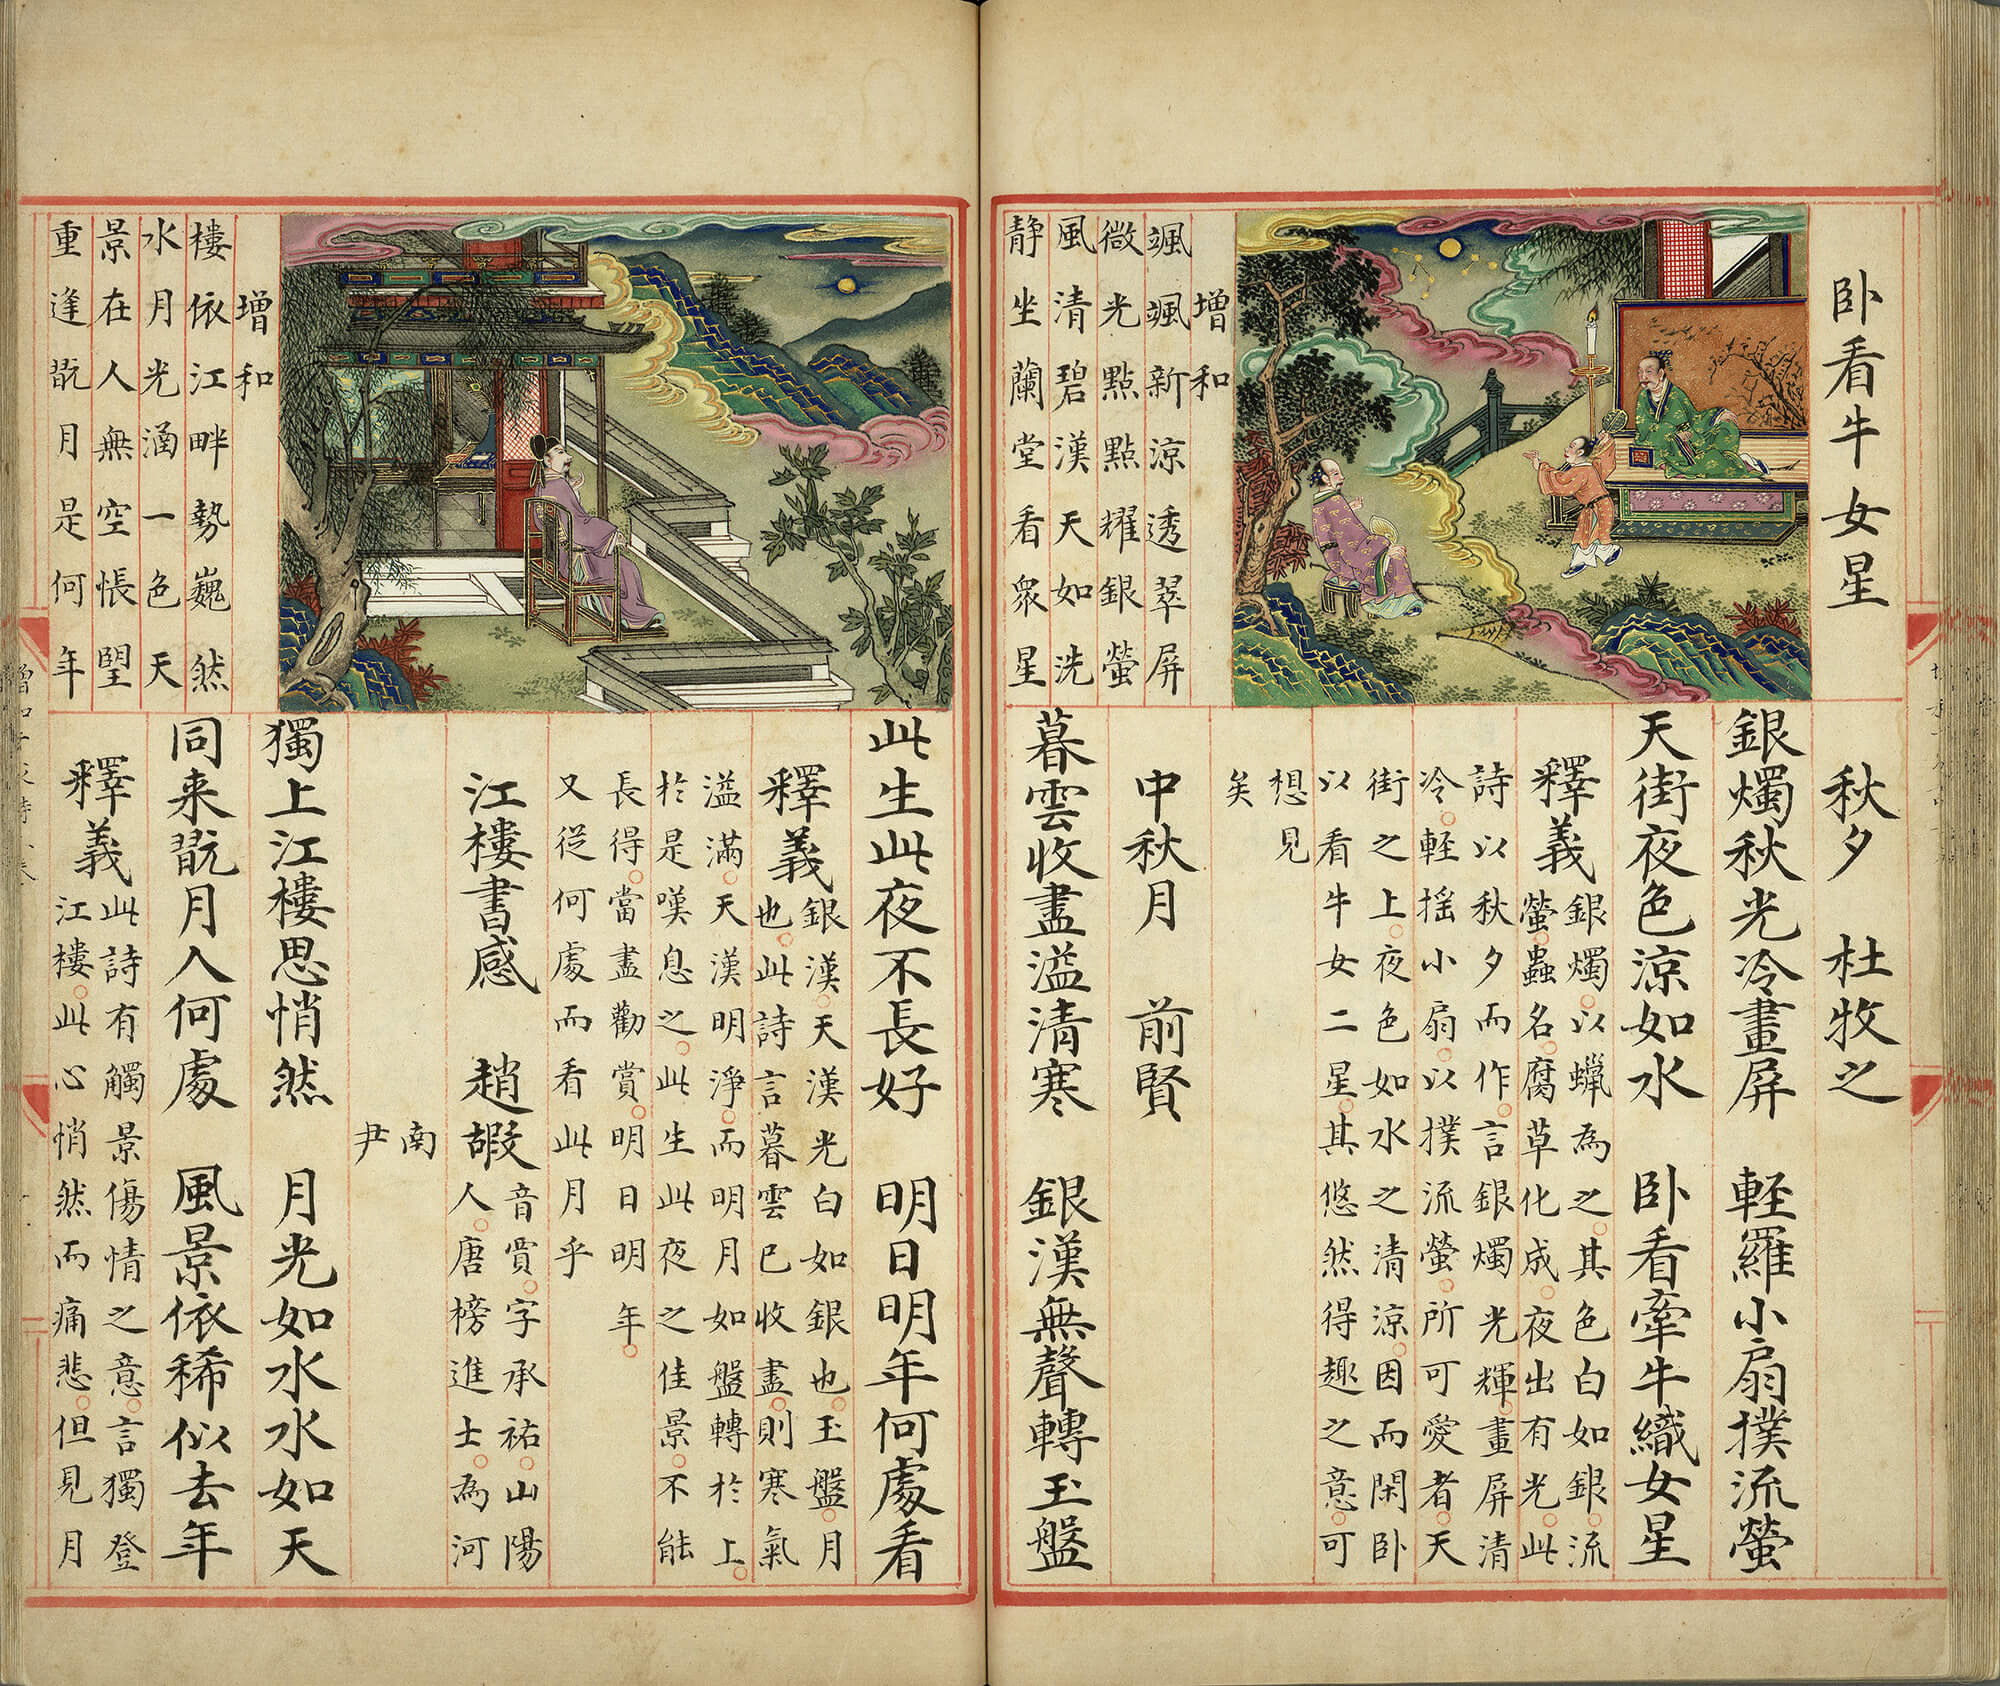 卧看牛女星
增和
颯颯新涼透翠屏
微光點點耀銀螢
風清碧漢天如洗
静坐蘭堂看衆星
秋夕 杜牧之
銀燭秋光冷畫屏 輕羅小扇撲流螢
天街夜色涼如水 卧看牽牛織女星
釋義
銀燭以蠟為之其色白如銀流
螢蟲名腐草化成夜出有光此
詩以秋夕而作言銀燭光輝畫屏清
冷輕摇小扇以撲流螢所可愛者天
街之上夜色如水之清涼因而閑卧
以看牛女二星其悠然得趣之意可
想見
矣
中秋月 前賢
暮雲收盡溢清寒 銀漢無聲轉玉盤
增和
樓依江畔勢巍然
水月光涵一色天
景在人無空悵望
重逢翫月是何年
此生此夜不長好 明日明年何處看
釋義
銀漢天漢光白如銀也玉盤月
也此詩言暮雲已收盡則寒氣
溢滿天漢明淨而明月如盤轉於上
於是嘆息之此生此夜之佳景不能
長得當盡勸賞明日明年
又從何處而看此月乎
江樓書感 趙嘏
音賈字承祐山陽
人唐榜進士為河
南
尹
獨上江樓思悄然 月光如水水如天
同来翫月人何處 風景依稀似去年
釋義
此詩有觸景傷情之意言獨登
江樓此心悄然而痛悲但見月